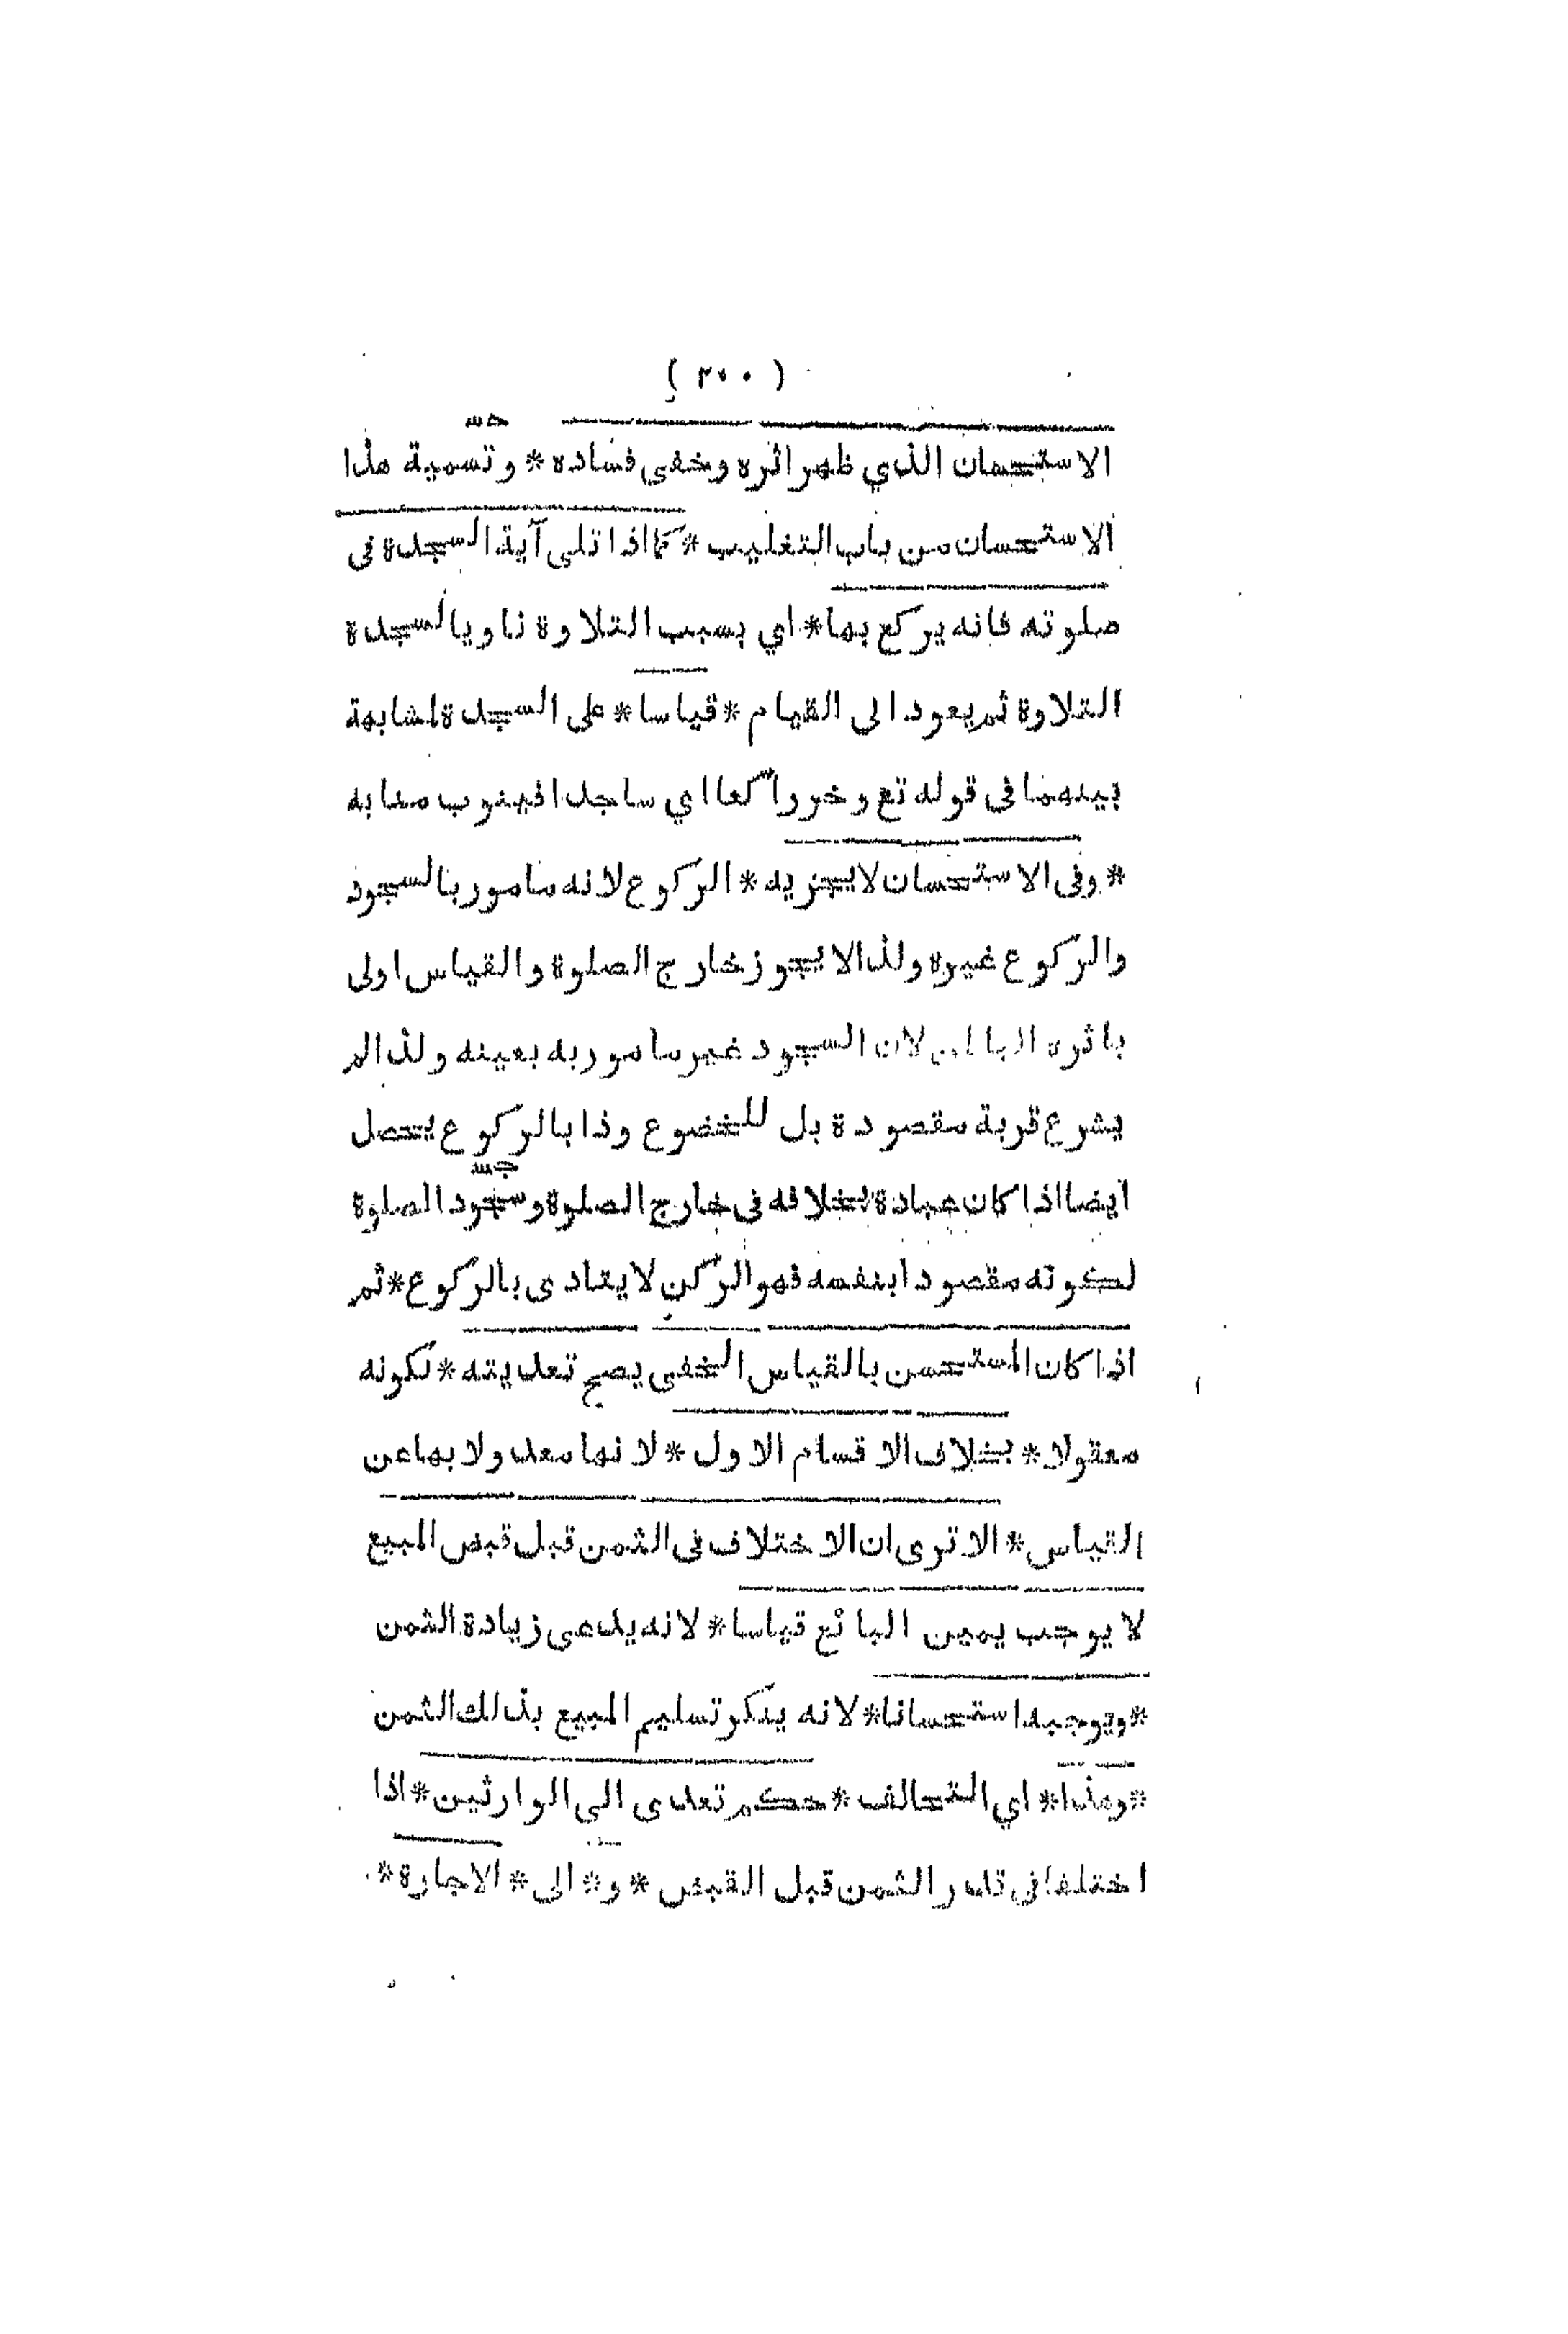 ( ٢٠٠ )
الاستحسان الذي ظهر اثره وخفى فساده * وتسمية هذا
الاستحسان من باب التغليب * كما اذا تلى آية السجدة فى
صلوته فانه يركع بها * اي بسبب التلاوة ناويا لسجدة
التلاوة ثم يعود الى القيام * قياسا * على السجدة لمشابهة
بينهما فى قوله تع وخر راكعا اي ساجدا فينوب منابه
* وفى الاستحسان لا يجزيه * الركوع لانه مامور بالسجود
والركوع غيره ولذا لا يجوز خارج الصلوة والقياس اولى
باثره الباطن لان السجود غير مامور به بعينه ولذا لم
يشرع قربة مقصودة بل للخضوع وذا بالركوع يحصل
ايضا اذا كان عبادة بخلافه فى خارج الصلوة وسجود الصلوة
لكونه مقصودا بنفسه فهو الركن لا يتادى بالركوع * ثم
اذا كان المستحسن بالقياس الخفى يصح تعديته * لكونه
معقولا * بخلاف الاقسام الاول * لانها معدولا بها عن
القياس * الا ترى ان الاختلاف فى الثمن قبل قبض المبيع
لا يوجب يمين البائع قياسا * لانه يدعى زيادة الثمن
* ويوجبه استحسانا * لانه ينكر تسليم المبيع بذالك الثمن
* وهذا * اي التحالف * حكم تعدى الى الوارثين * اذا
اختلفا فى قدر الثمن قبل القبض * و * الى * الاجارة *